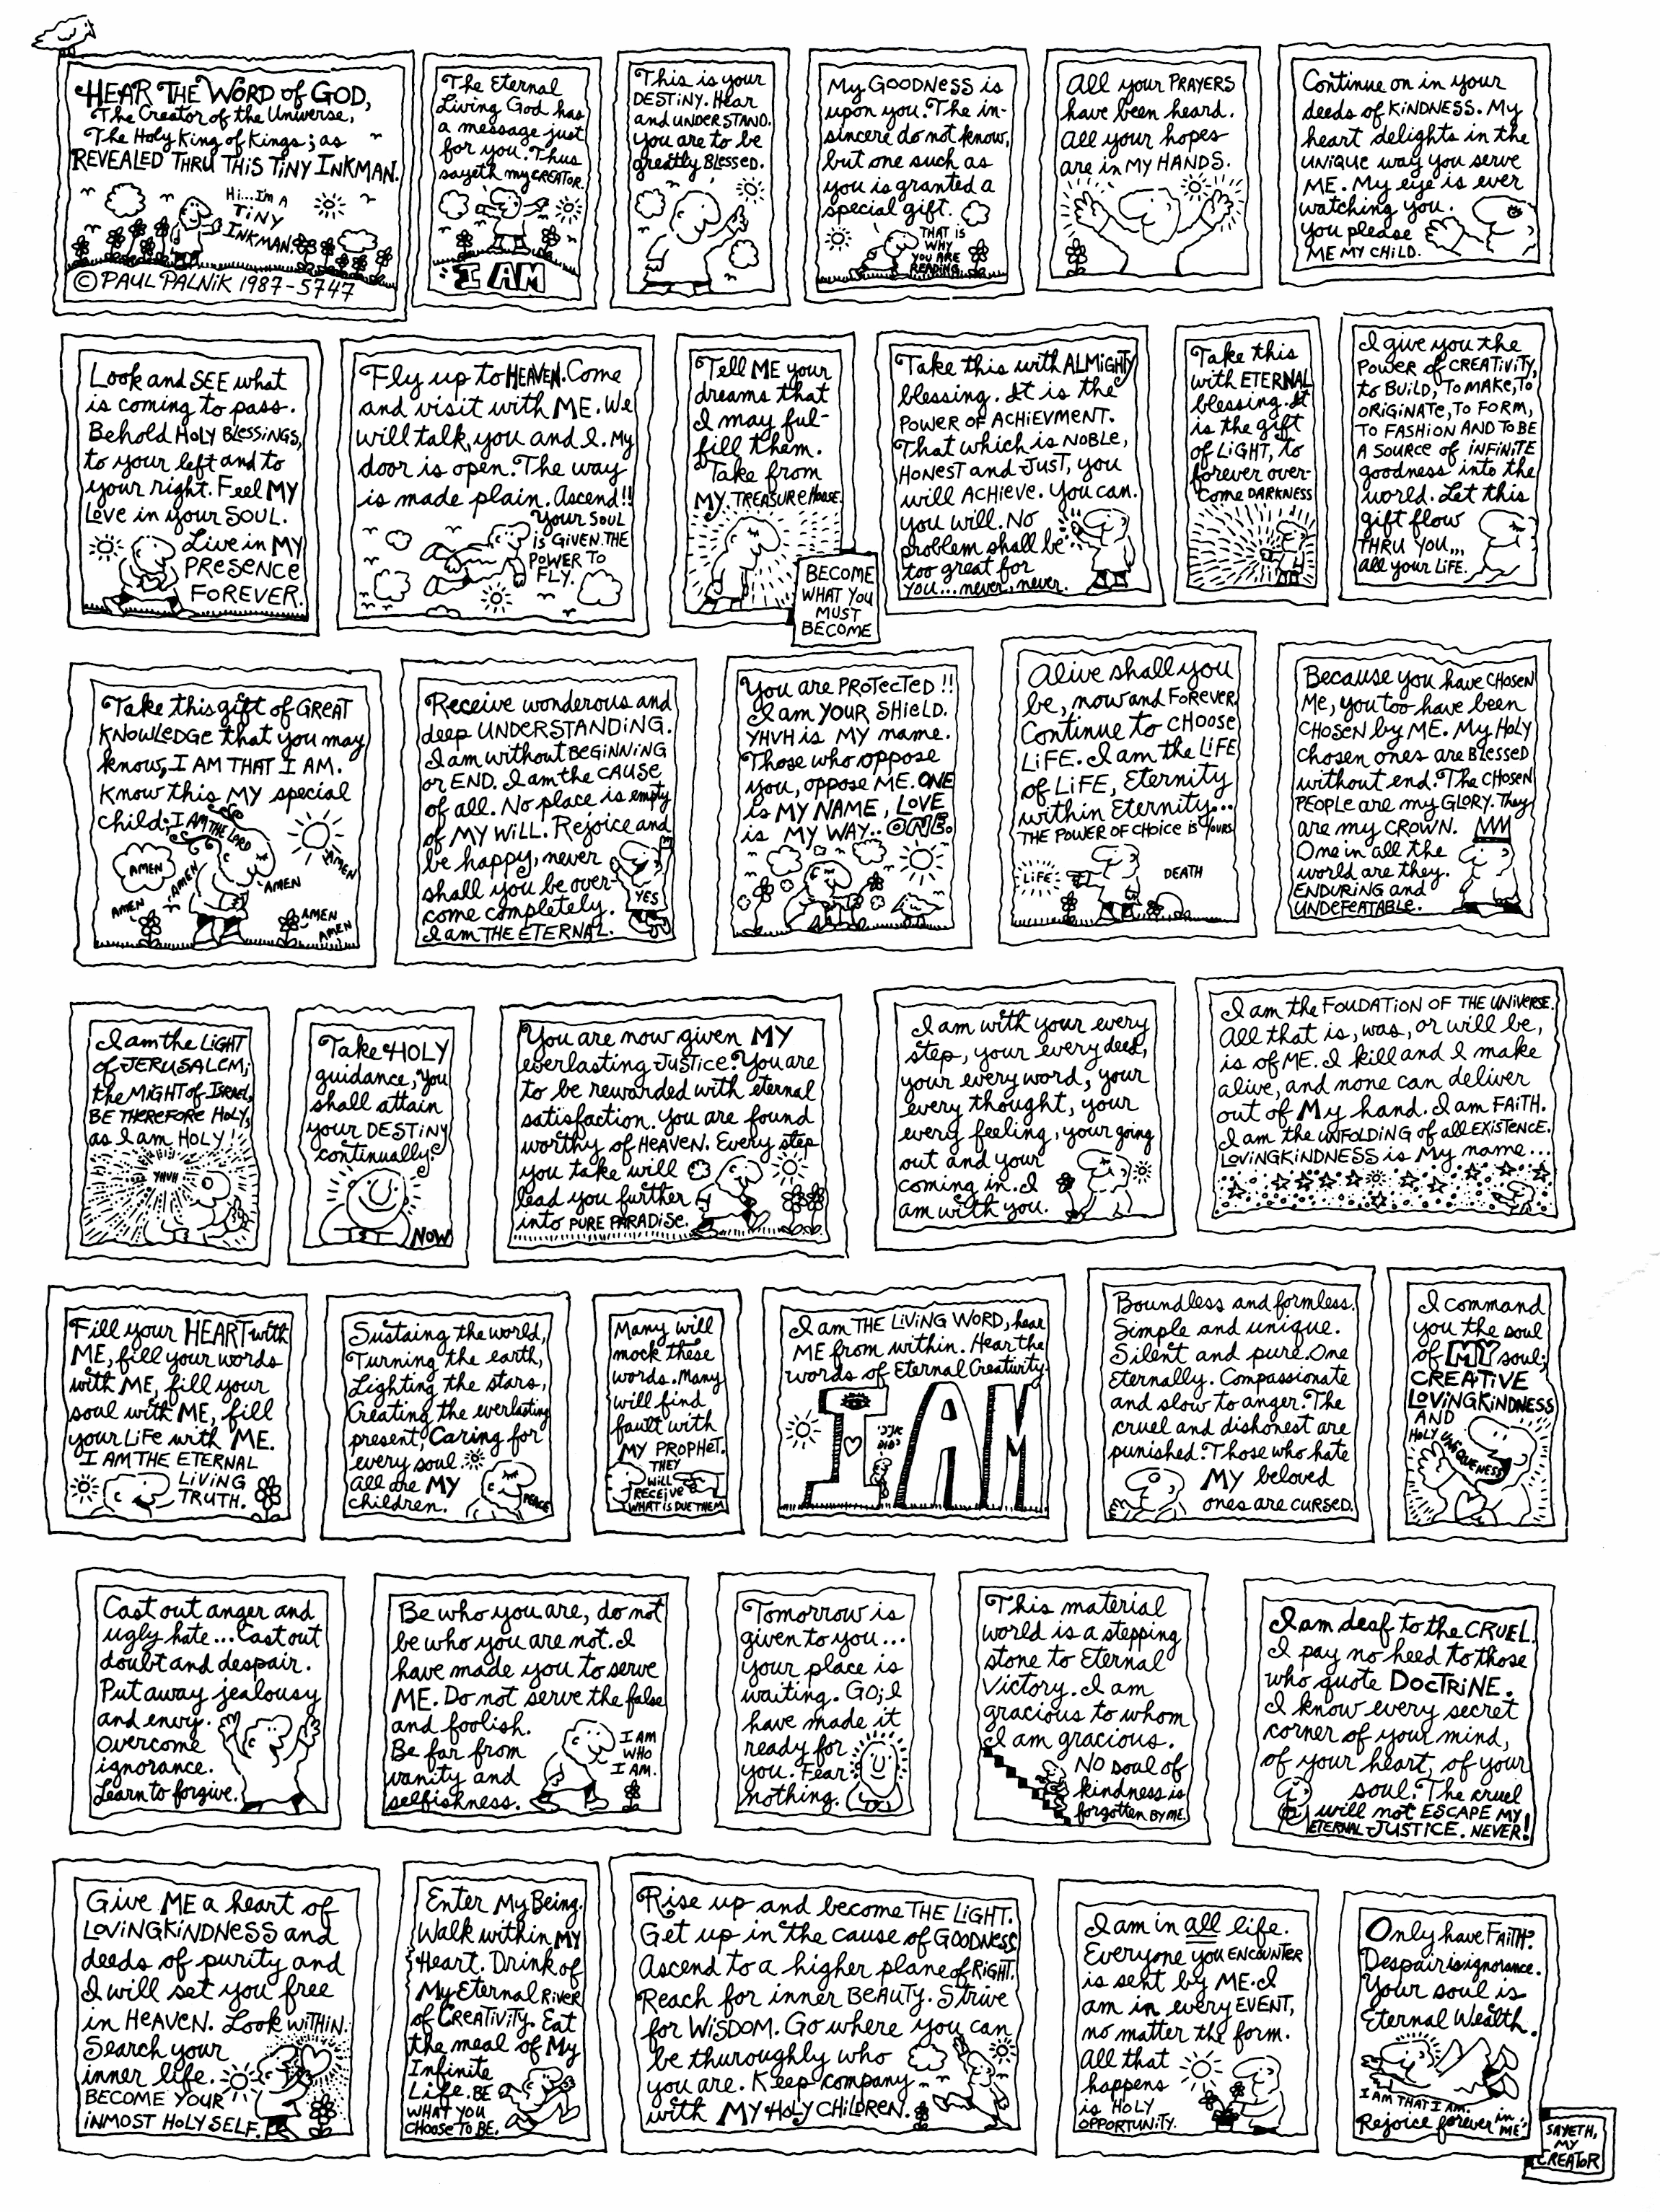 HEAR THE WORD of GOD,
The Creator of the Universe,
The Holy King of Kings; as
REVEALED THRU THIS TINY INKMAN.
Hi...Im a
TINY
INKMAN.
© PAUL PALNIK 1987-5747
The Eternal
Living God has
a message just
for you. Thus
sayeth my CREATOR.
I AM
This is your
DESTINY. Hear
and UNDERSTAND.
You are to be
greatly BLESSED.
My GOODNESS is
upon you. The in-
sincere do not know,
but one such as
you is granted a
special gift.
THAT IS
WHY
YOU ARE
READING
All your PRAYERS
have been heard.
All your hopes
are in MY HANDS.
Continue on in your
deeds of KINDNESS. My
heart delights in the
UNIQUE way you serve
ME. My eye is ever
watching you.
You please
ME MY CHILD.
Look and SEE what
is coming to pass.
Behold HOLY BLESSINGS,
to your left and to
your right. Feel MY
Love in your SOUL.
Live in MY
PRESENCE
FOREVER.
Fly up to HEAVEN. Come
and visit with ME. We
will talk, you and I. My
door is open. The way
is made plain. Ascend!!
Your SOUL
is GIVEN THE
POWER TO
FLY.
Tell ME your
dreams that
I may ful-
fill them.
Take from
MY TREASURE HOUSE.
BECOME
WHAT YOU
MUST
BECOME
Take this with ALMIGHTY
blessing. It is the
POWER OF ACHIEVMENT.
That which is NOBLE,
HONEST and JUST, you
will ACHIEVE. You can.
You will. No
problem shall be
too great for
YOU... never, never.
Take this
with ETERNAL
blessing. It
is the gift
of LIGHT, to
forever over-
come DARKNESS
I give you the
POWER of CREATIVITY,
to BUILD, TO MAKE, TO
ORIGINATE, TO FORM,
TO FASHION AND TO BE
A SOURCE OF INFINITE
goodness into the
world. Let this
gift flow
THRU YOU...
all your LIFE.
Take this gift of GREAT
KNOWLEDGE that you may
know, I AM THAT I AM.
Know this MY special
child; I AM THE LORD
AMEN
AMEN
AMEN
AMEN
AMEN
AMEN
AMEN
Receive wonderous and
deep UNDERSTANDING.
I am without BEGINNING
or END. I am the CAUSE
of all. No place is empty
of MY WILL. Rejoice and
be happy, never
shall you be over-
come completely.
I am THE ETERNAL.
YES
You are PROTECTED!!
I am YOUR SHIELD.
YHVH is MY name.
Those who oppose
you, oppose ME. ONE
is MY NAME, LOVE
is MY WAY.. ONE.
Alive shall you
be, now and FOREVER
Continue to CHOOSE
LIFE. I am the LIFE
of LIFE, Eternity
within Eternity...
THE POWER OF CHOICE is YOURS
LIFE
DEATH
Because you have CHOSEN
Me, you too have been
CHOSEN by ME. My HOLY
Chosen ones are BLESSED
without end. The CHOSEN
PEOPLE are my GLORY. They
are my CROWN.
One in all the
world are they.
ENDURING and
UNDEFEATABLE.
I am the LIGHT
of JERUSALEM;
the MIGHT of ISRAEL,
BE THEREFORE HOLY,
as I am HOLY!!
YHVH
Take HOLY
guidance, you
shall attain
your DESTINY
continually.
NOW
You are now given MY
everlasting JUSTICE. You are
to be rewarded with eternal
satisfaction. You are found
worthy of HEAVEN. Every step
you take will
lead you further
into PURE PARADISE.
I am with your every
step, your every deed,
your every word, your
every thought, your
every feeling, your going
out and your
coming in. I
am with you.
I am the FOUDATION OF THE UNIVERSE.
All that is, was, or will be,
is of ME. I kill and I make
alive, and none can deliver
out of My hand. I am FAITH.
I am the UNFOLDING of all EXISTENCE.
LOVINGKINDNESS is My name...
Fill your HEART with
ME, fill your words
with ME, fill your
soul with ME, fill
your LIFE with ME.
I AM THE ETERNAL
LIVING
TRUTH.
Sustaing the world,
Turning the earth,
Lighting the stars,
Creating the everlasting
present, Caring for
every soul.
All are MY
children.
PEACE
Many will
mock these
words. Many
will find
fault with
MY PROPHET.
THEY
WILL
RECEIVE
WHAT IS DUE THEM
I am THE LIVING WORD, hear
ME from within. Hear the
words of Eternal Creativity.
I AM
Boundless and formless.
Simple and unique.
Silent and pure. One
Eternally. Compassionate
and slow to anger. The
cruel and dishonest are
punished. Those who hate
MY beloved
ones are CURSED.
I command
you the soul
of MY soul;
CREATIVE
LOVINGKINDNESS
AND
HOLY UNIQUENESS
Cast out anger and
ugly hate... Cast out
doubt and despair.
Put away jealousy
and envy.
Overcome
ignorance.
Learn to forgive.
Be who you are, do not
be who you are not. I
have made you to serve
ME. Do not serve the false
and foolish.
Be far from
vanity and
selfishness.
I AM
WHO
I AM.
Tomorrow is
given to you...
your place is
waiting. GO; I
have made it
ready for
you. Fear
nothing.
This material
world is a stepping
stone to Eternal
Victory. I am
gracious to whom
I am gracious.
NO soul of
kindness is
forgotten BY ME.
I am deaf to the CRUEL.
I pay no heed to those
who quote DOCTRINE.
I know every secret
corner of your mind,
of your heart, of your
soul. The cruel
will not ESCAPE MY
ETERNAL JUSTICE. NEVER!
Give ME a heart of
LOVINGKINDNESS and
deeds of purity and
I will set you free
in HEAVEN. Look WITHIN.
Search your
inner life.
BECOME YOUR
INMOST HOLY SELF.
Enter My Being.
Walk within MY
Heart. Drink of
My Eternal RIVER
of CREATIVITY. Eat
the meal of My
Infinite
Life. BE
WHAT YOU
CHOOSE TO BE.
Rise up and become THE LIGHT.
Get up in the cause of GOODNESS
Ascend to a higher plane of RIGHT.
Reach for inner BEAUTY. Strive
for WISDOM. Go where you can
be thuroughly who
you are. Keep company
with MY HOLY CHILDREN.
I am in all life.
Everyone you ENCOUNTER
is sent by ME. I
am in every EVENT,
no matter the form.
All that
happens
is HOLY
OPPORTUNITY.
Only have FAITH.
Despair is ignorance.
Your soul is
Eternal Wealth.
I AM THAT I AM.
Rejoice forever in
ME.
SAYETH,
MY
CREATOR